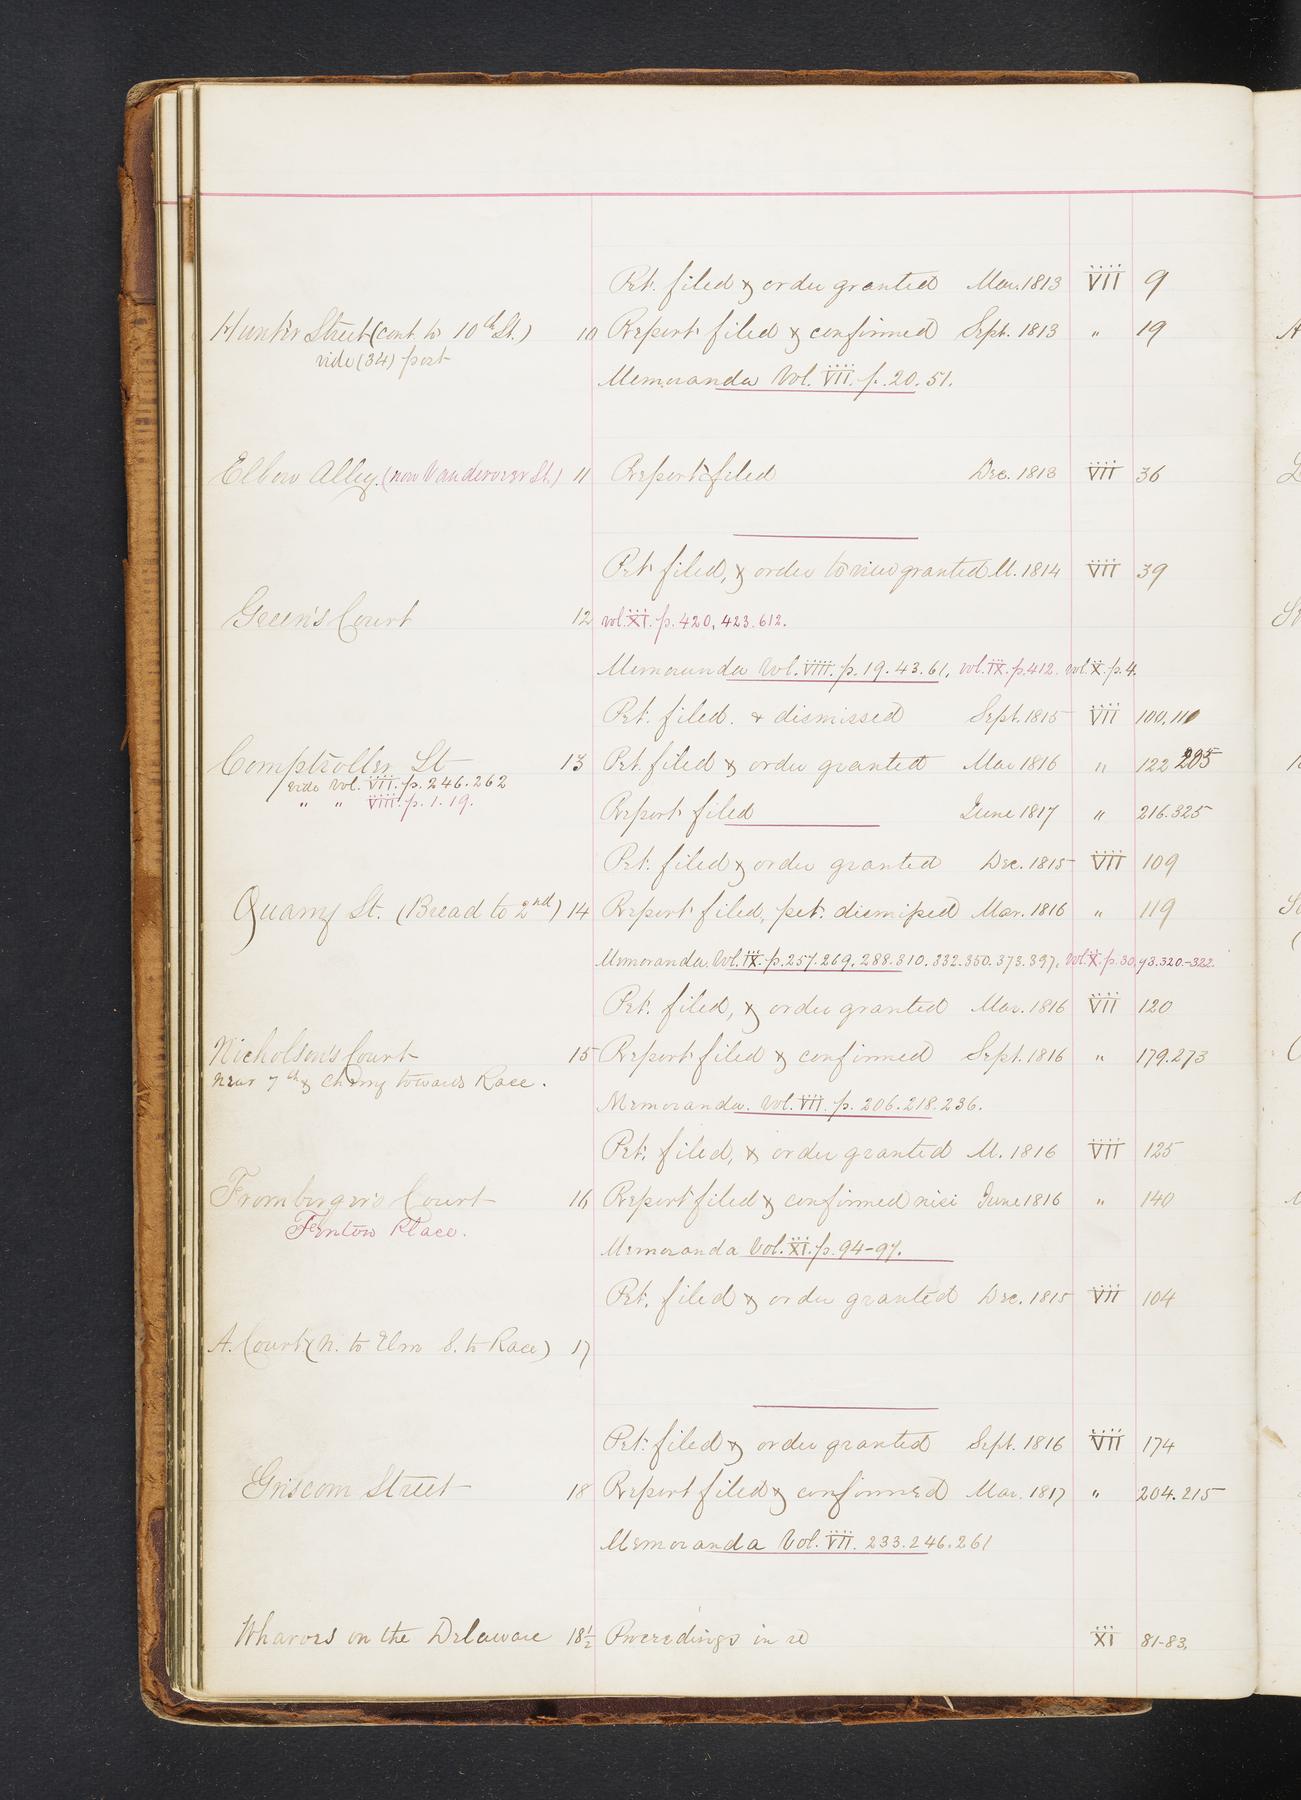 Pet. filed & order granted Mar. 1813 VII 9
Hunter Street (cont. to 10th St.) 10 Report filed & confirmed Sept. 1813 " 19
vide (34) post
Memoranda Vol. VII. p. 20. 51.
Elbow Alley. (now Vandeveer St.) 11 Report filed Dec. 1813 VII 36
Pet. filed, & order to view granted M. 1814 VII 39
Green's Court 12 vol. XI. p. 420, 423. 612.
Memoranda Vol. VIII. p. 19. 43. 61. vol. IX. p. 412. vol. X. p. 4.
Pet. filed. & dismissed Sept. 1815 VII 100. 110
Comptroller St 13 Pet. filed & order granted Mar 1816 " 122 205
vide Vol. VII. p. 246. 262
" " VIII. p. 1. 19.
Report filed June 1817 " 216. 325
Pet. filed & order granted Dec. 1815 VII 109
Quarry St. (Bread to 2nd) 14 Report filed, pet. dismissed Mar. 1816 " 119
Memoranda. Vol. IX. p. 257. 269. 288. 310. 332. 350. 373. 397. Vol. X. p. 30. 93. 320.-322.
Pet. filed, & order granted Mar. 1816 VII 120
Nicholson's Court 15 Report filed & confirmed Sept. 1816 " 179. 273
near 7th & Cherry towards Race.
Memoranda. Vol. VII. p. 206. 218. 236.
Pet. filed, & order granted M. 1816 VII 125
Fromberger's Court 16 Report filed & confirmed nisi June 1816 " 140
Fenton Place.
Memoranda Vol. XI. p. 94-97.
Pet. filed & order granted Dec. 1815 VII 104
A. Court (N. to Elm S. to Race) 17
Pet. filed & order granted Sept. 1816 VII 174
Griscom Street 18 Report filed & confirmed Mar. 1817 " 204. 215
Memoranda Vol. VII. 233. 246. 261
Wharves on the Delaware 18½ Proceedings in re XI 81-83.